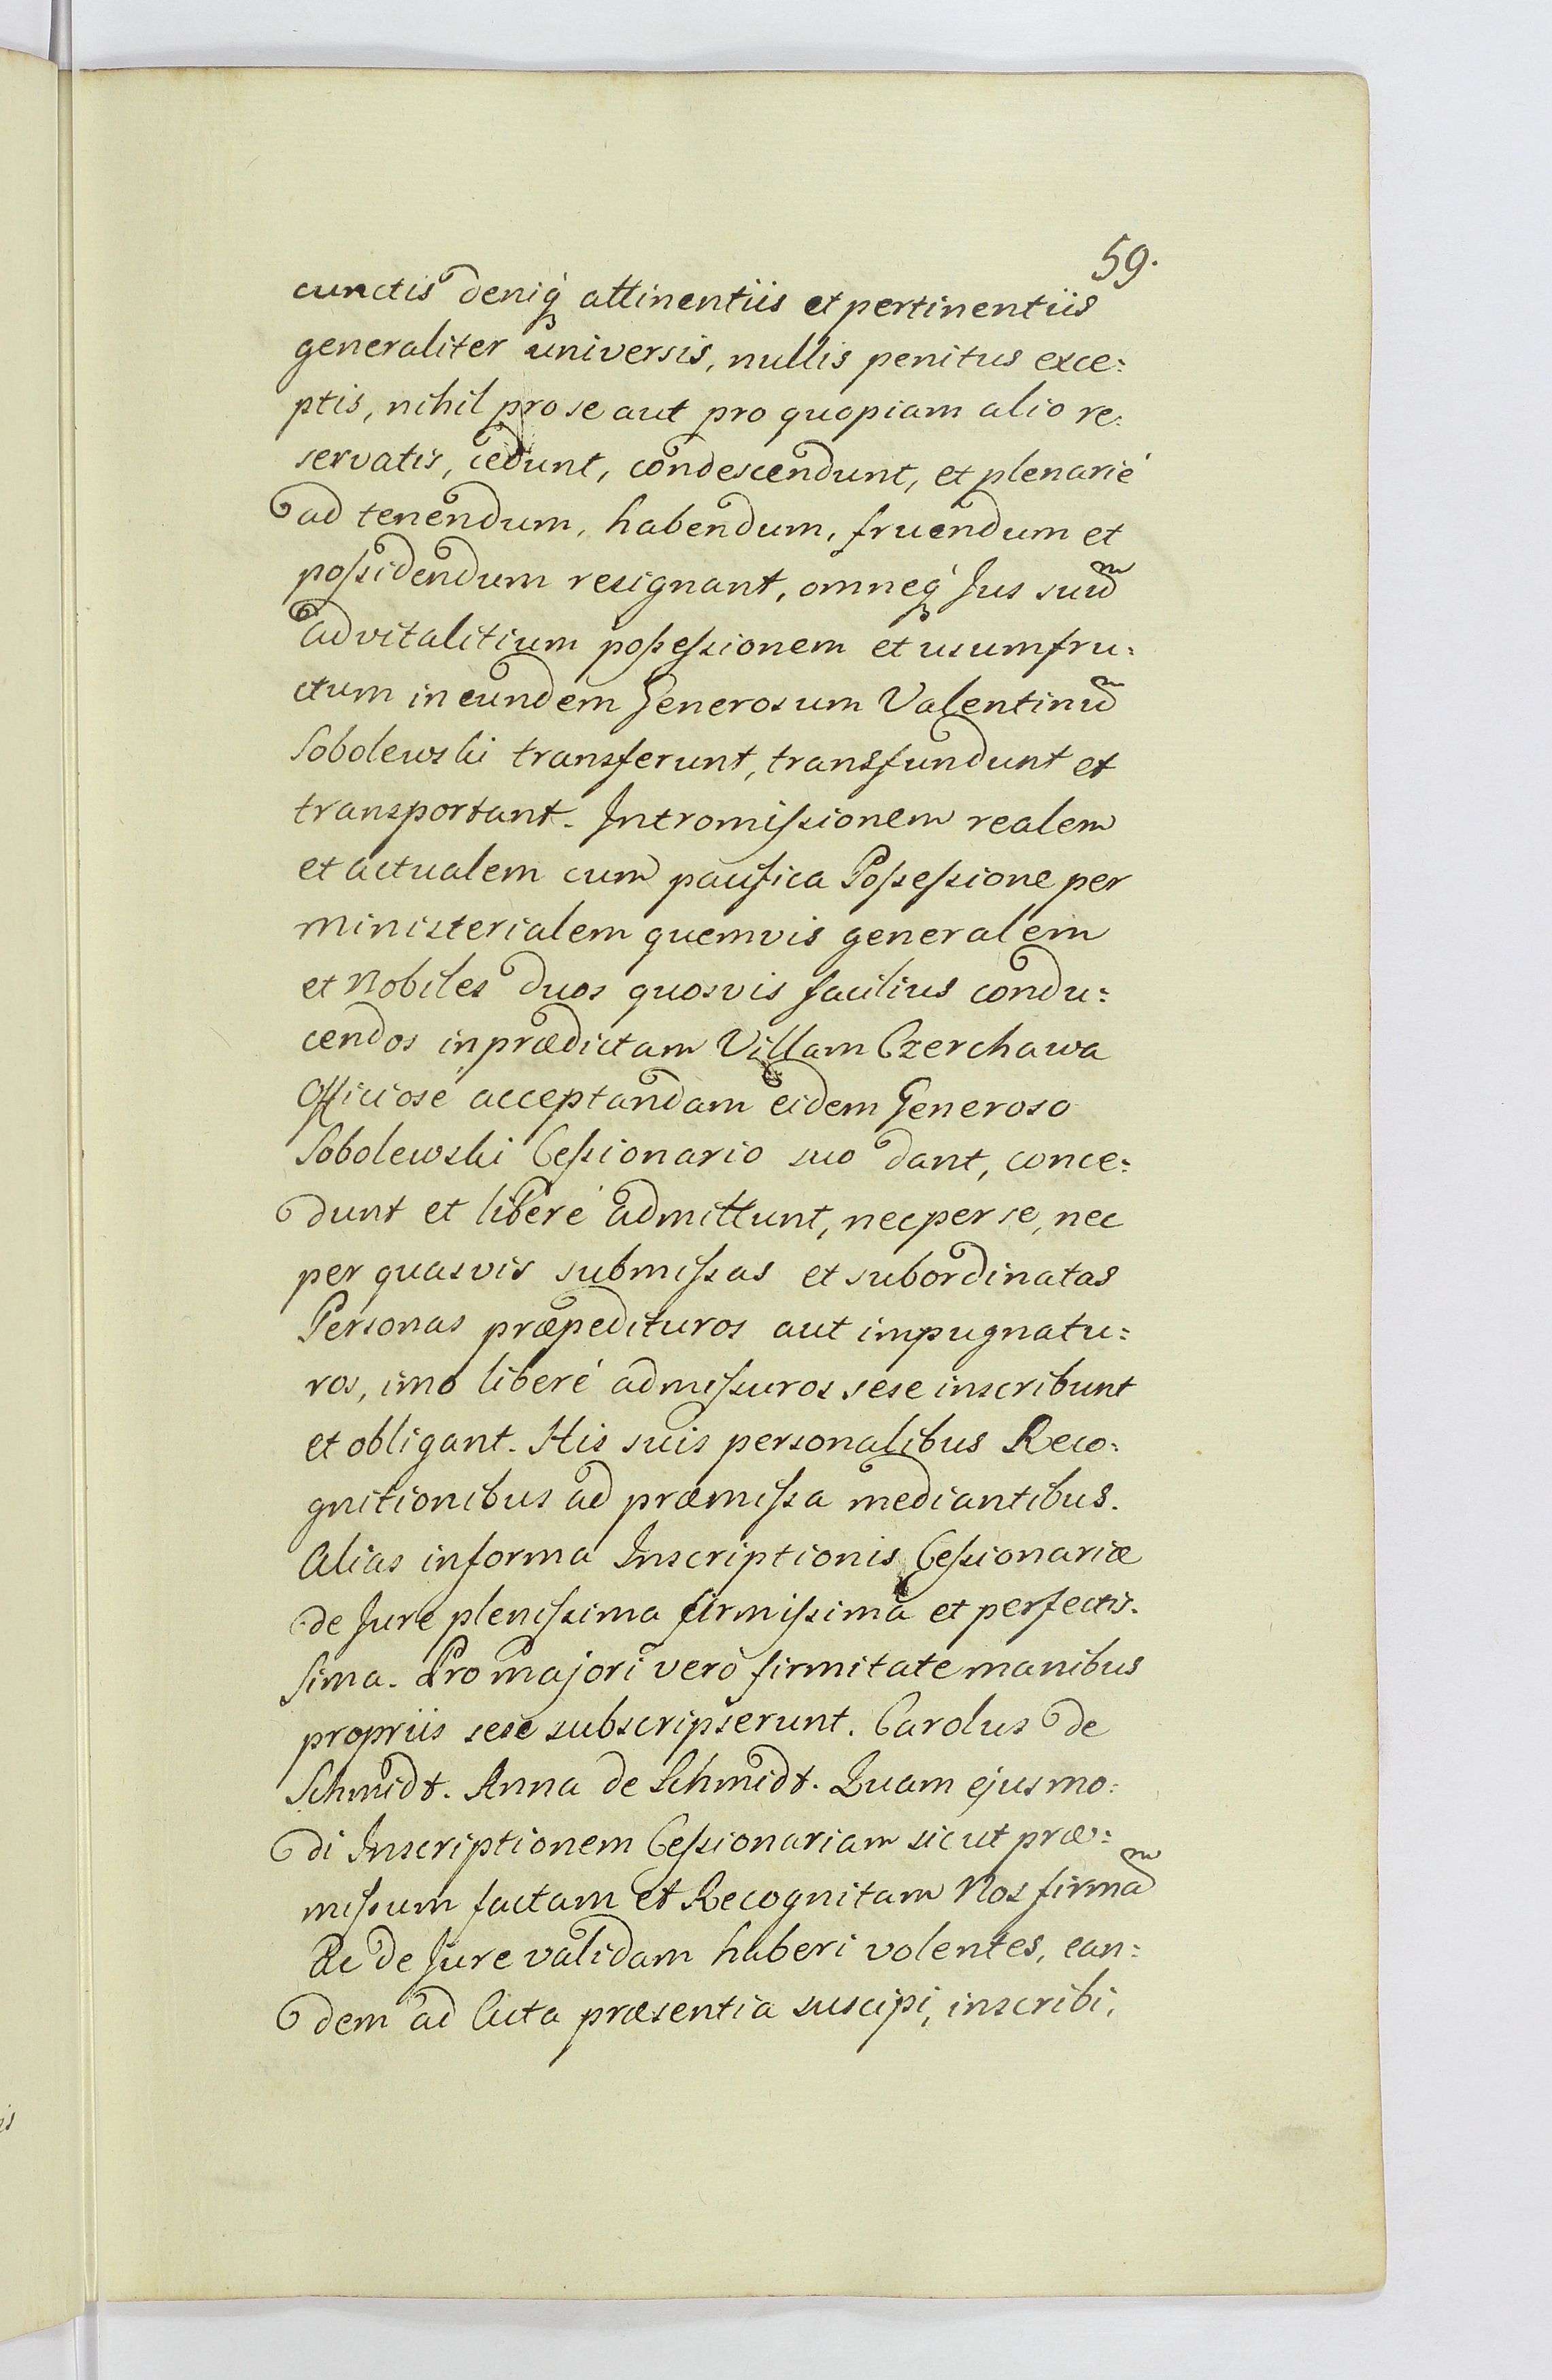 59.
cunctis deniq́ attinentiis et pertinentiis
generaliter universis, nullis penitus exce:
ptis, nihil pro se aut pro quopiam alio re:
servatis, cedunt, condescendunt, et plenarié
ad tenendum, habendum, fruendum et
poſsidendum resignant, omneq́ Jus suū
advitalitium poſseſsionem et usumfru:
ctum in eundem Generosum Valentinū
Sobolewski transferunt, transfundunt et
transportant. Intromiſsionem realem
et actualem cum pacifica Poſseſsione per
Ministerialem quemvis generalem
et Nobiles duos quosvis facilius condu:
cendos in prædictam Villam Czerchawa
Officiosé acceptandam eidem Generoso
Sobolewski Ceſsionario suo dant, conce:
dunt et liberé admittunt, nec per se, nec
per quasvis submiſsas et subordinatas
Personas præpedituros aut impugnatu:
ros, imo liberé admiſsuros sese inscribunt
et obligant. His suis personalibus Reco:
gnitionibus ad præmiſsa mediantibus.
Alias in forma Inscriptionis Ceſsionariæ
de Jure pleniſsima firmiſsima et perfectis:
sima. Pro majori veró firmitate manibus
propriis sese subscripserunt. Carolus de
Schmidt. Anna de Schmidt. Quam ejusmo:
di Inscriptionem Ceſsionariam sicut præ:
miſsum factam et Recognitam Nos firmā
Ac de Jure validam haberi volentes, ean:
dem ad Acta præsentia suscipi, inscribi,